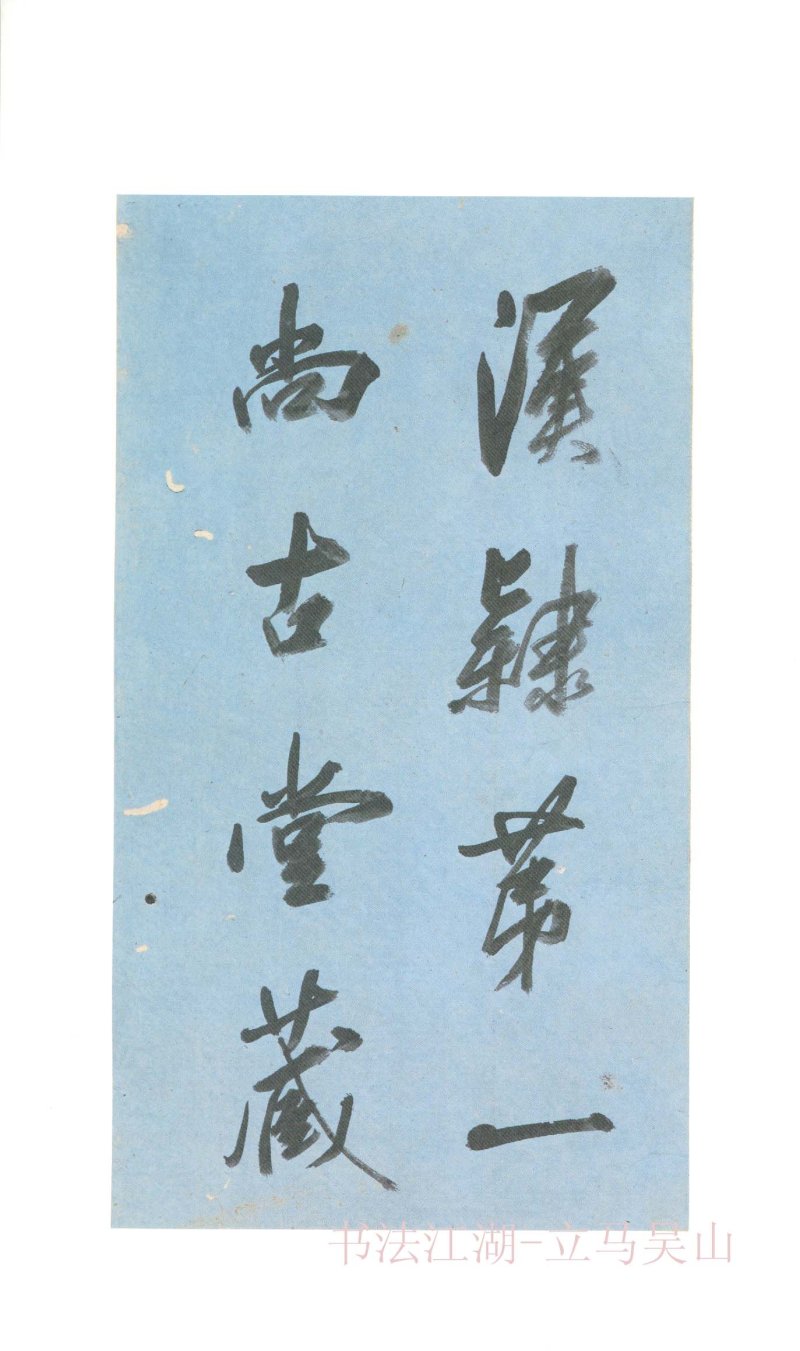 漢隷苐一
尚古堂藏
书法江湖-立马吴山